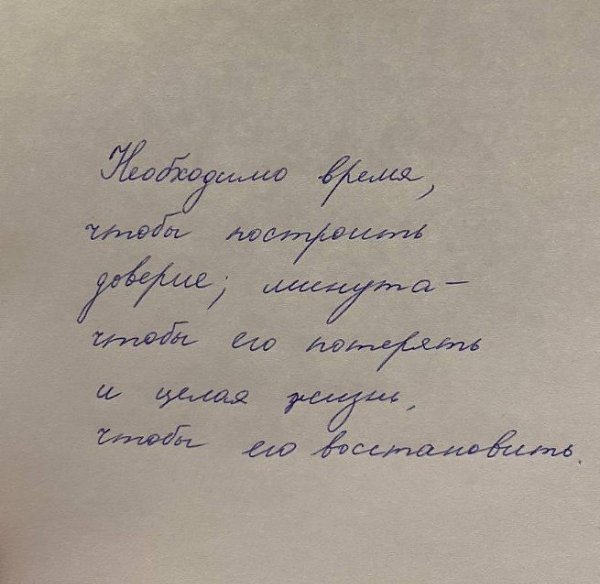 Необходимо время,
чтобы построить
доверие; минута —
чтобы его потерять
и целая жизнь,
чтобы его восстановить.